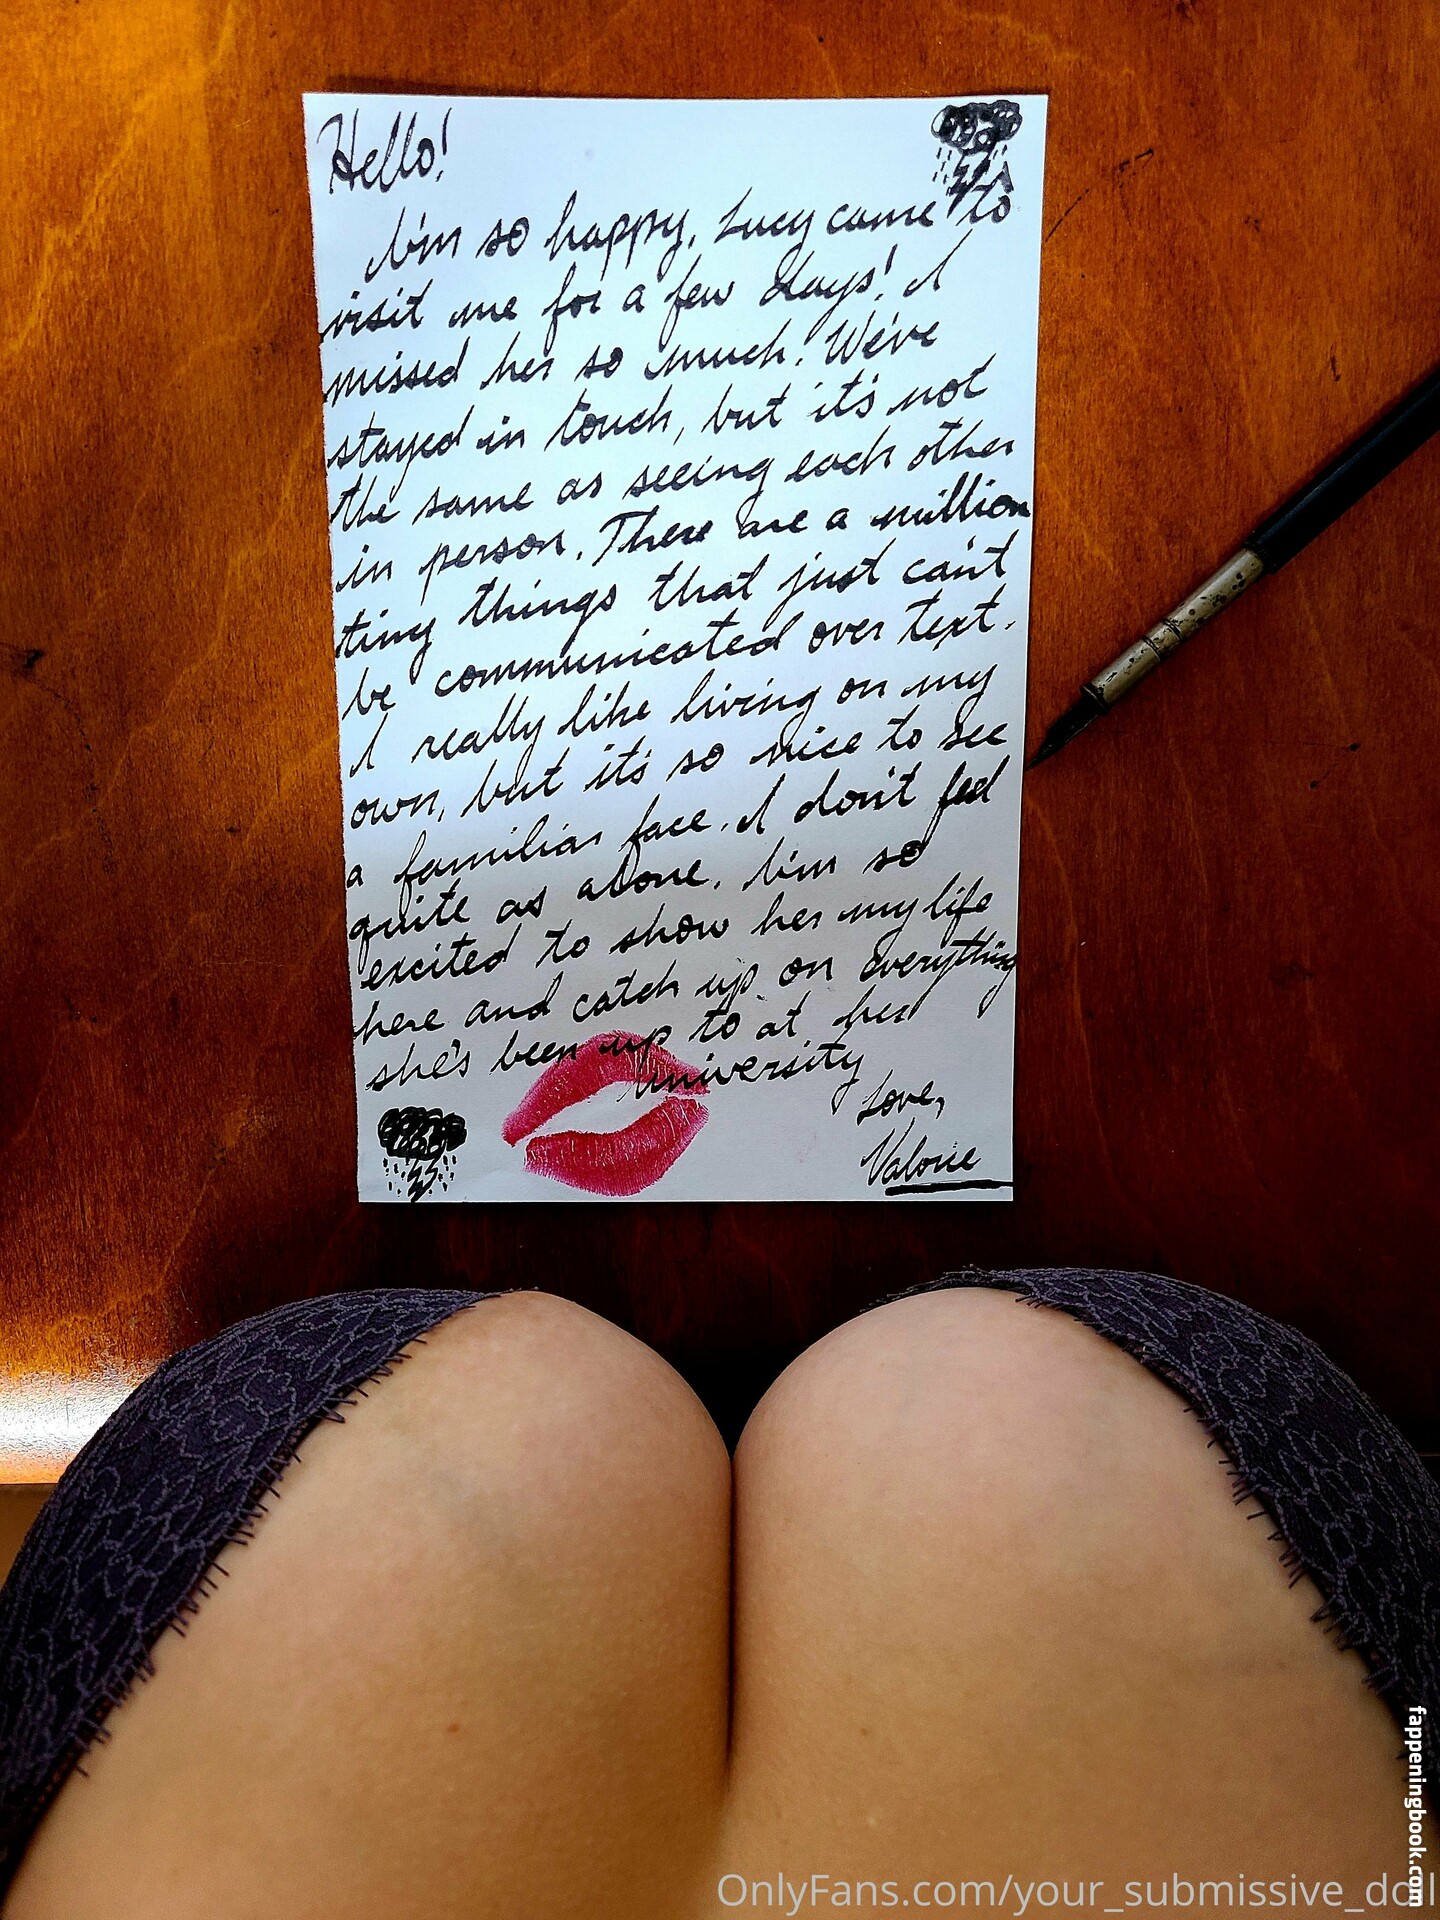 Hello!
I'm so happy, Lucy came to
visit me for a few days! I
missed her so much! We've
stayed in touch, but it's not
the same as seeing each other
in person. There are a million
tiny things that just can't
be communicated over text.
I really like living on my
own, but it's so nice to see
a familiar face. I don't feel
quite as alone. I'm so
excited to show her my life
here and catch up on everything
she's been up to at her
university
Love,
Valorie
fappeningbook.com
OnlyFans.com/your_submissive_doll